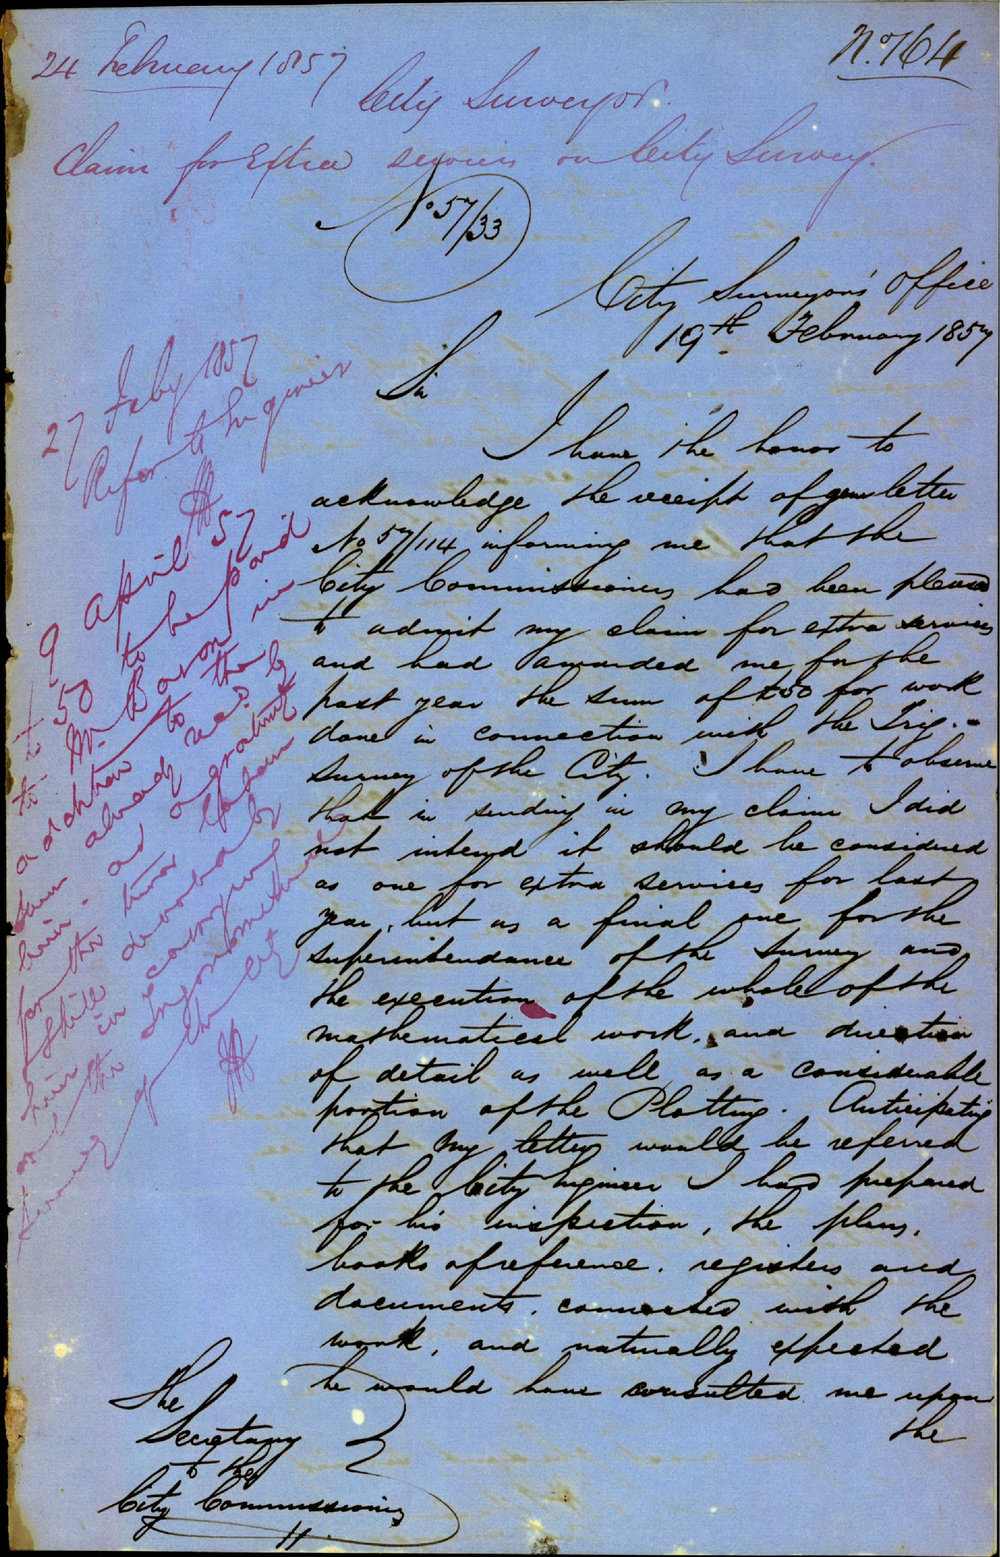 24 February 1857
No 164
City Surveyor.
Claim for Extra services on City Survey.
No 57/33
City Surveyor's Office
19th February 1857
Sir
I have the honor to
acknowledge the receipt of your letter
No 57/114 informing me that the
City Commissioners had been pleased
to admit my claim for extra services
and had awarded me for the
past year the sum of £50 for work
done in connection with the Trig.
Survey of the City. I have to observe
that in sending in my claim I did
not intend it should be considered
as one for extra services for last
year, but as a final one for the
superintendance of the Survey and
the execution of the whole of the
mathematical work, and direction
of detail as well as a considerable
portion of the Plotting. Anticipating
that my letter would be referred
to the City Engineer I had prepared
for his inspection, the plans,
books of reference, registers and
documents, connected with the
work, and naturally expected
he would have consulted me upon
the
The
Secretary
to the
City Commissioners
27 Feby 1857
Refer to Engineer
9 April 57
£50 to be paid
to Mr Baron in
addition to the
sum already
him. as a gratuity
for the
skill
him in carrying
on the Trigonometrical
Survey of the City